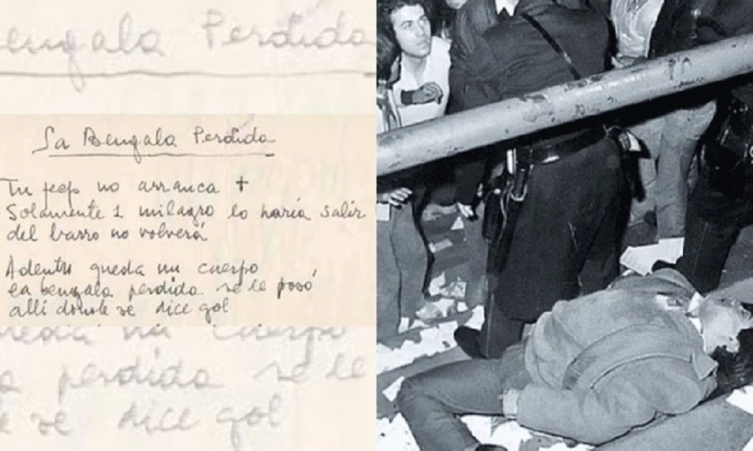 engala Perdida
La Bengala Perdida
Tu jeep no arranca +
Solamente 1 milagro lo haría salir
del barro no volverá
Adentro queda un cuerpo
la bengala perdida se le posó
allí donde se dice gol
ueda un cuerpo
a perdida se le
se dice gol